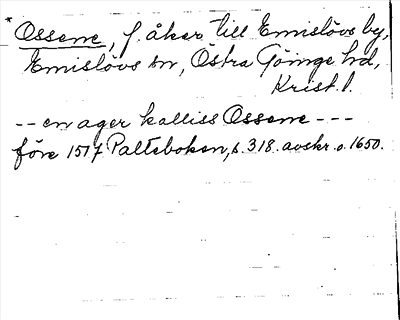 * Ossene, f. åker till Emislövs by,
Emislövs sn, Östra Göinge hd,
Krist. l.
-- en ager kalliss Ossene ---
före 1517 Palteboken, s. 318. avskr. o. 1650.